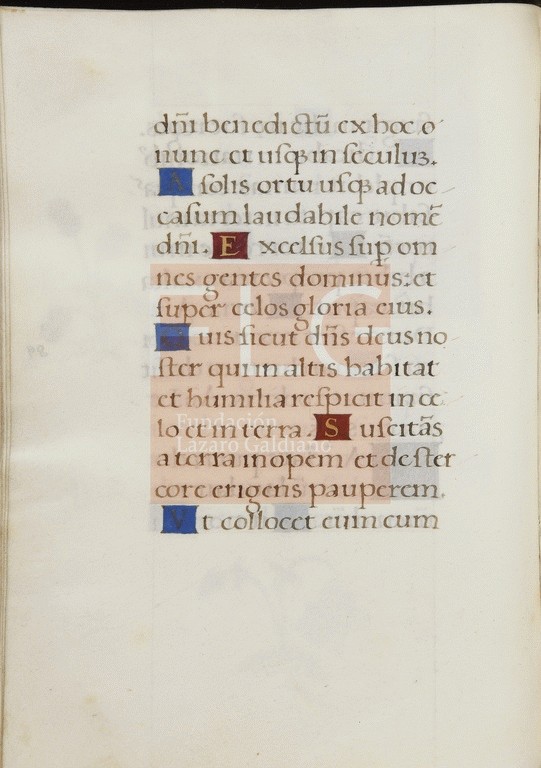 dñi benedictũ ex hoc o
nunc et uſqꝫ in ſeculuꝫ.
A ſolis ortu uſqꝫ ad oc
caſum laudabile nomẽ
dñi. E xcelſus ſuꝑ om
nes gentes dominus: et
ſuper celos gloria eius.
Q uis ſicut dñs deus no
ſter qui in altis habitat
et humilia reſpicit in ce
lo et in terra. S uſcitãs
a terra inopem et de ſter
core erigens pauperem.
V t collocet eum cum
FLG
Fundación
Lázaro Galdiano